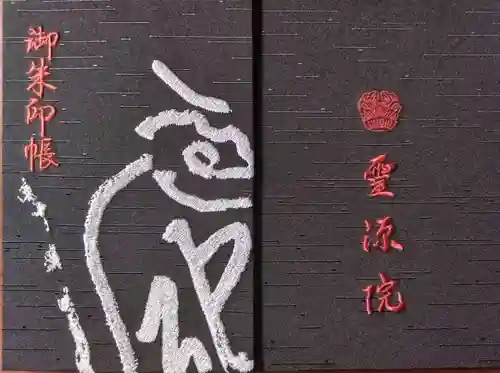 御朱印帳
霊源院